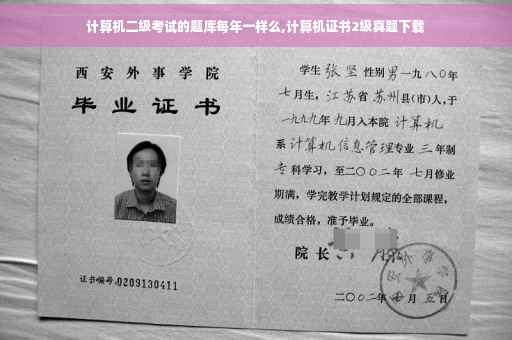 计算机二级考试的题库每年一样么,计算机证书2级真题下载
西安外事学院
毕业证书
证书编号:0209130411
学生 张坚 性别 男 一九八〇年
七月生, 江苏省 苏州县(市)人,于
一九九九年 九月入本院 计算机
系 计算机信息管理专业 三 年制
专科学习,至二〇〇二年 七月修业
期满,学完教学计划规定的全部课程,
成绩合格,准予毕业。
院长
二〇〇二年 月 五日